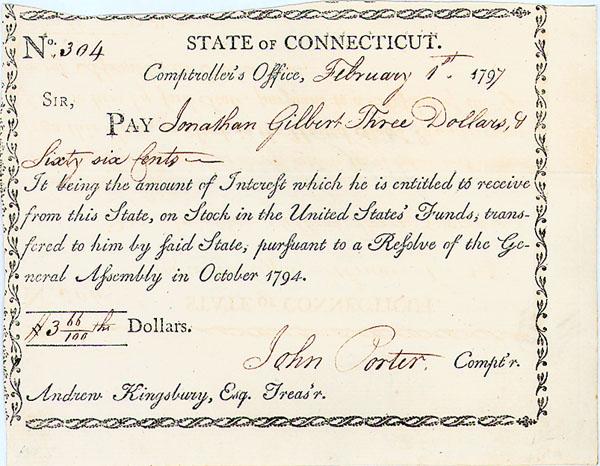 No. 304 STATE OF CONNECTICUT.
Comptroller's Office, February 1st. 1797
SIR,
PAY Jonathan Gilbert Three Dollars, &
Sixty six Cents
It being the amount of Interest which he is entitled to receive
from this State, on Stock in the United States' Funds, trans-
fered to him by said State, pursuant to a Resolve of the Ge-
neral Assembly in October 1794.
$3 66/100 ths Dollars.
John Porter. Compt'r.
Andrew Kingsbury, Esq. Treas'r.